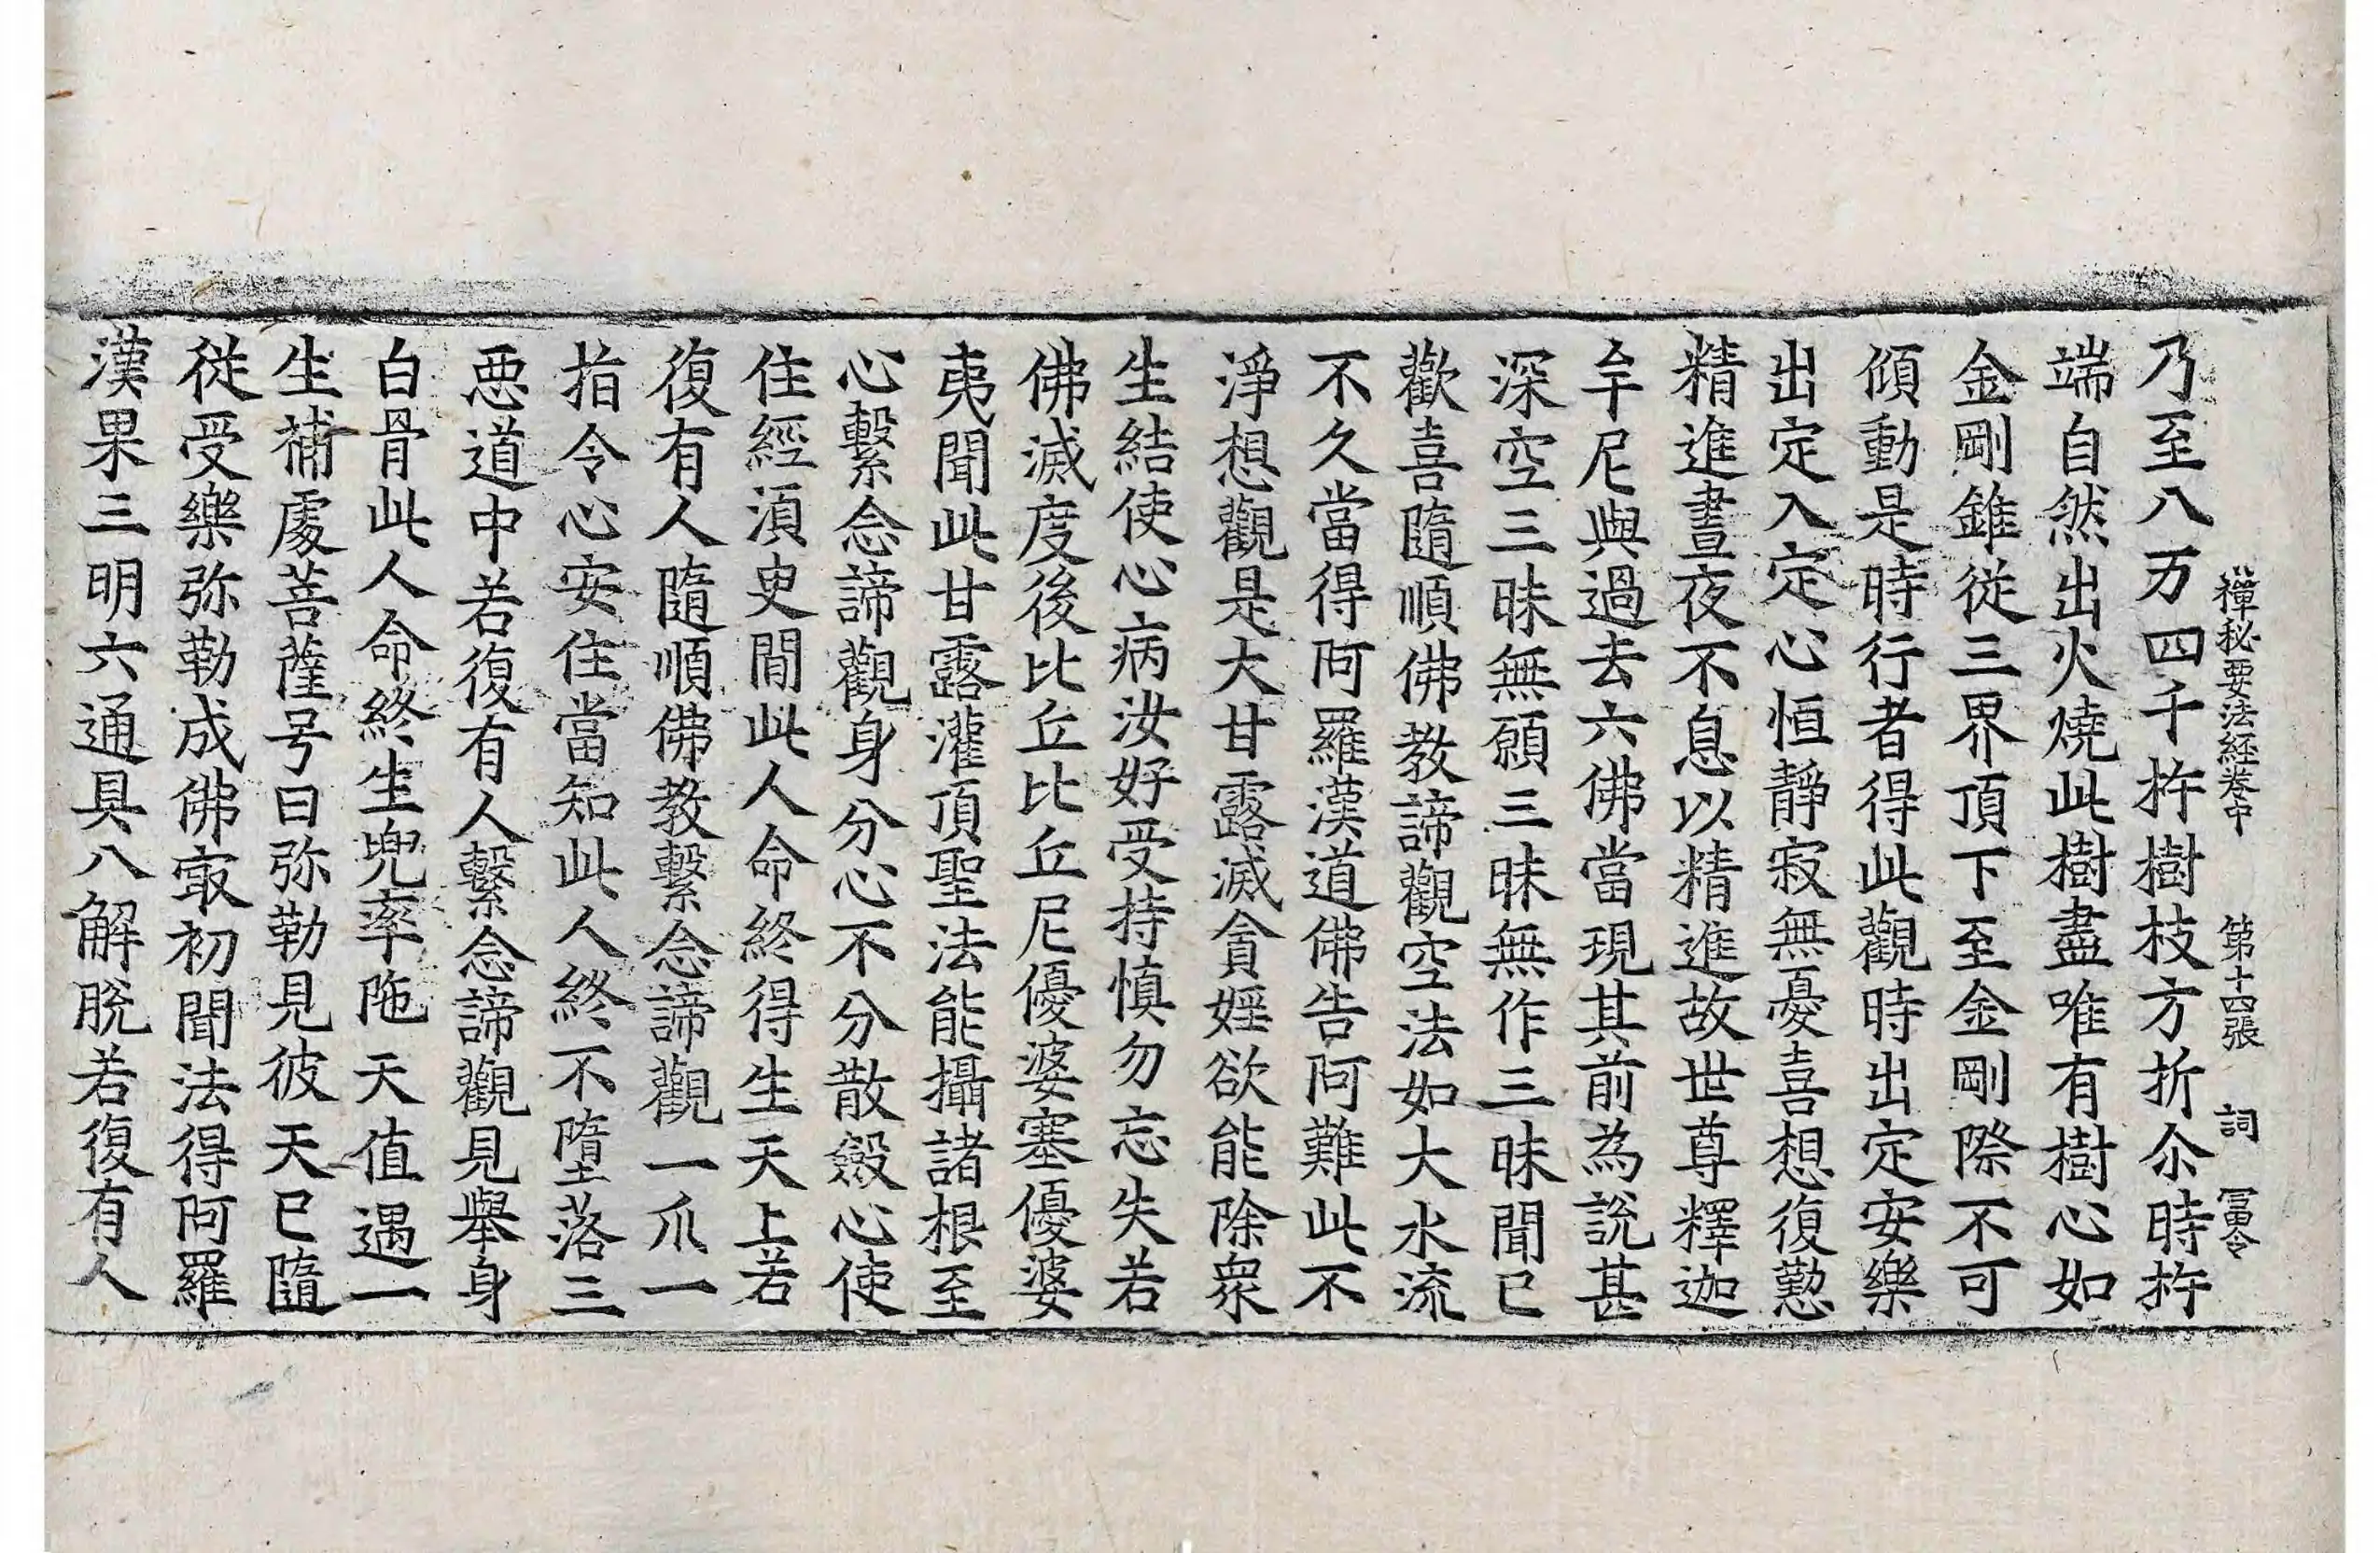 禪秘要法經卷中 第十四張 詞 冨令
乃至八万四千拃樹枝方折尒時拃
端自然出火燒此樹盡唯有樹心如
金剛錐從三界頂下至金剛際不可
傾動是時行者得此觀時出定安樂
出定入定心恒靜寂無憂喜想復懃
精進晝夜不息以精進故世尊釋迦
牟尼與過去六佛當現其前為說甚
深空三昧無願三昧無作三昧聞已
歡喜隨順佛教諦觀空法如大水流
不久當得阿羅漢道佛告阿難此不
淨想觀是大甘露滅貪婬欲能除衆
生結使心病汝好受持慎勿忘失若
佛滅度後比丘比丘尼優婆塞優婆
夷聞此甘露灌頂聖法能攝諸根至
心繫念諦觀身分心不分散斂心使
住經湏臾閒此人命終得生天上若
復有人隨順佛教繫念諦觀一爪一
指令心安住當知此人終不墮落三
惡道中若復有人繫念諦觀見舉身
白骨此人命終生兜率陁天值遇一
生補處菩薩号曰弥勒見彼天已隨
從受樂弥勒成佛㝡初聞法得阿羅
漢果三明六通具八解脫若復有人